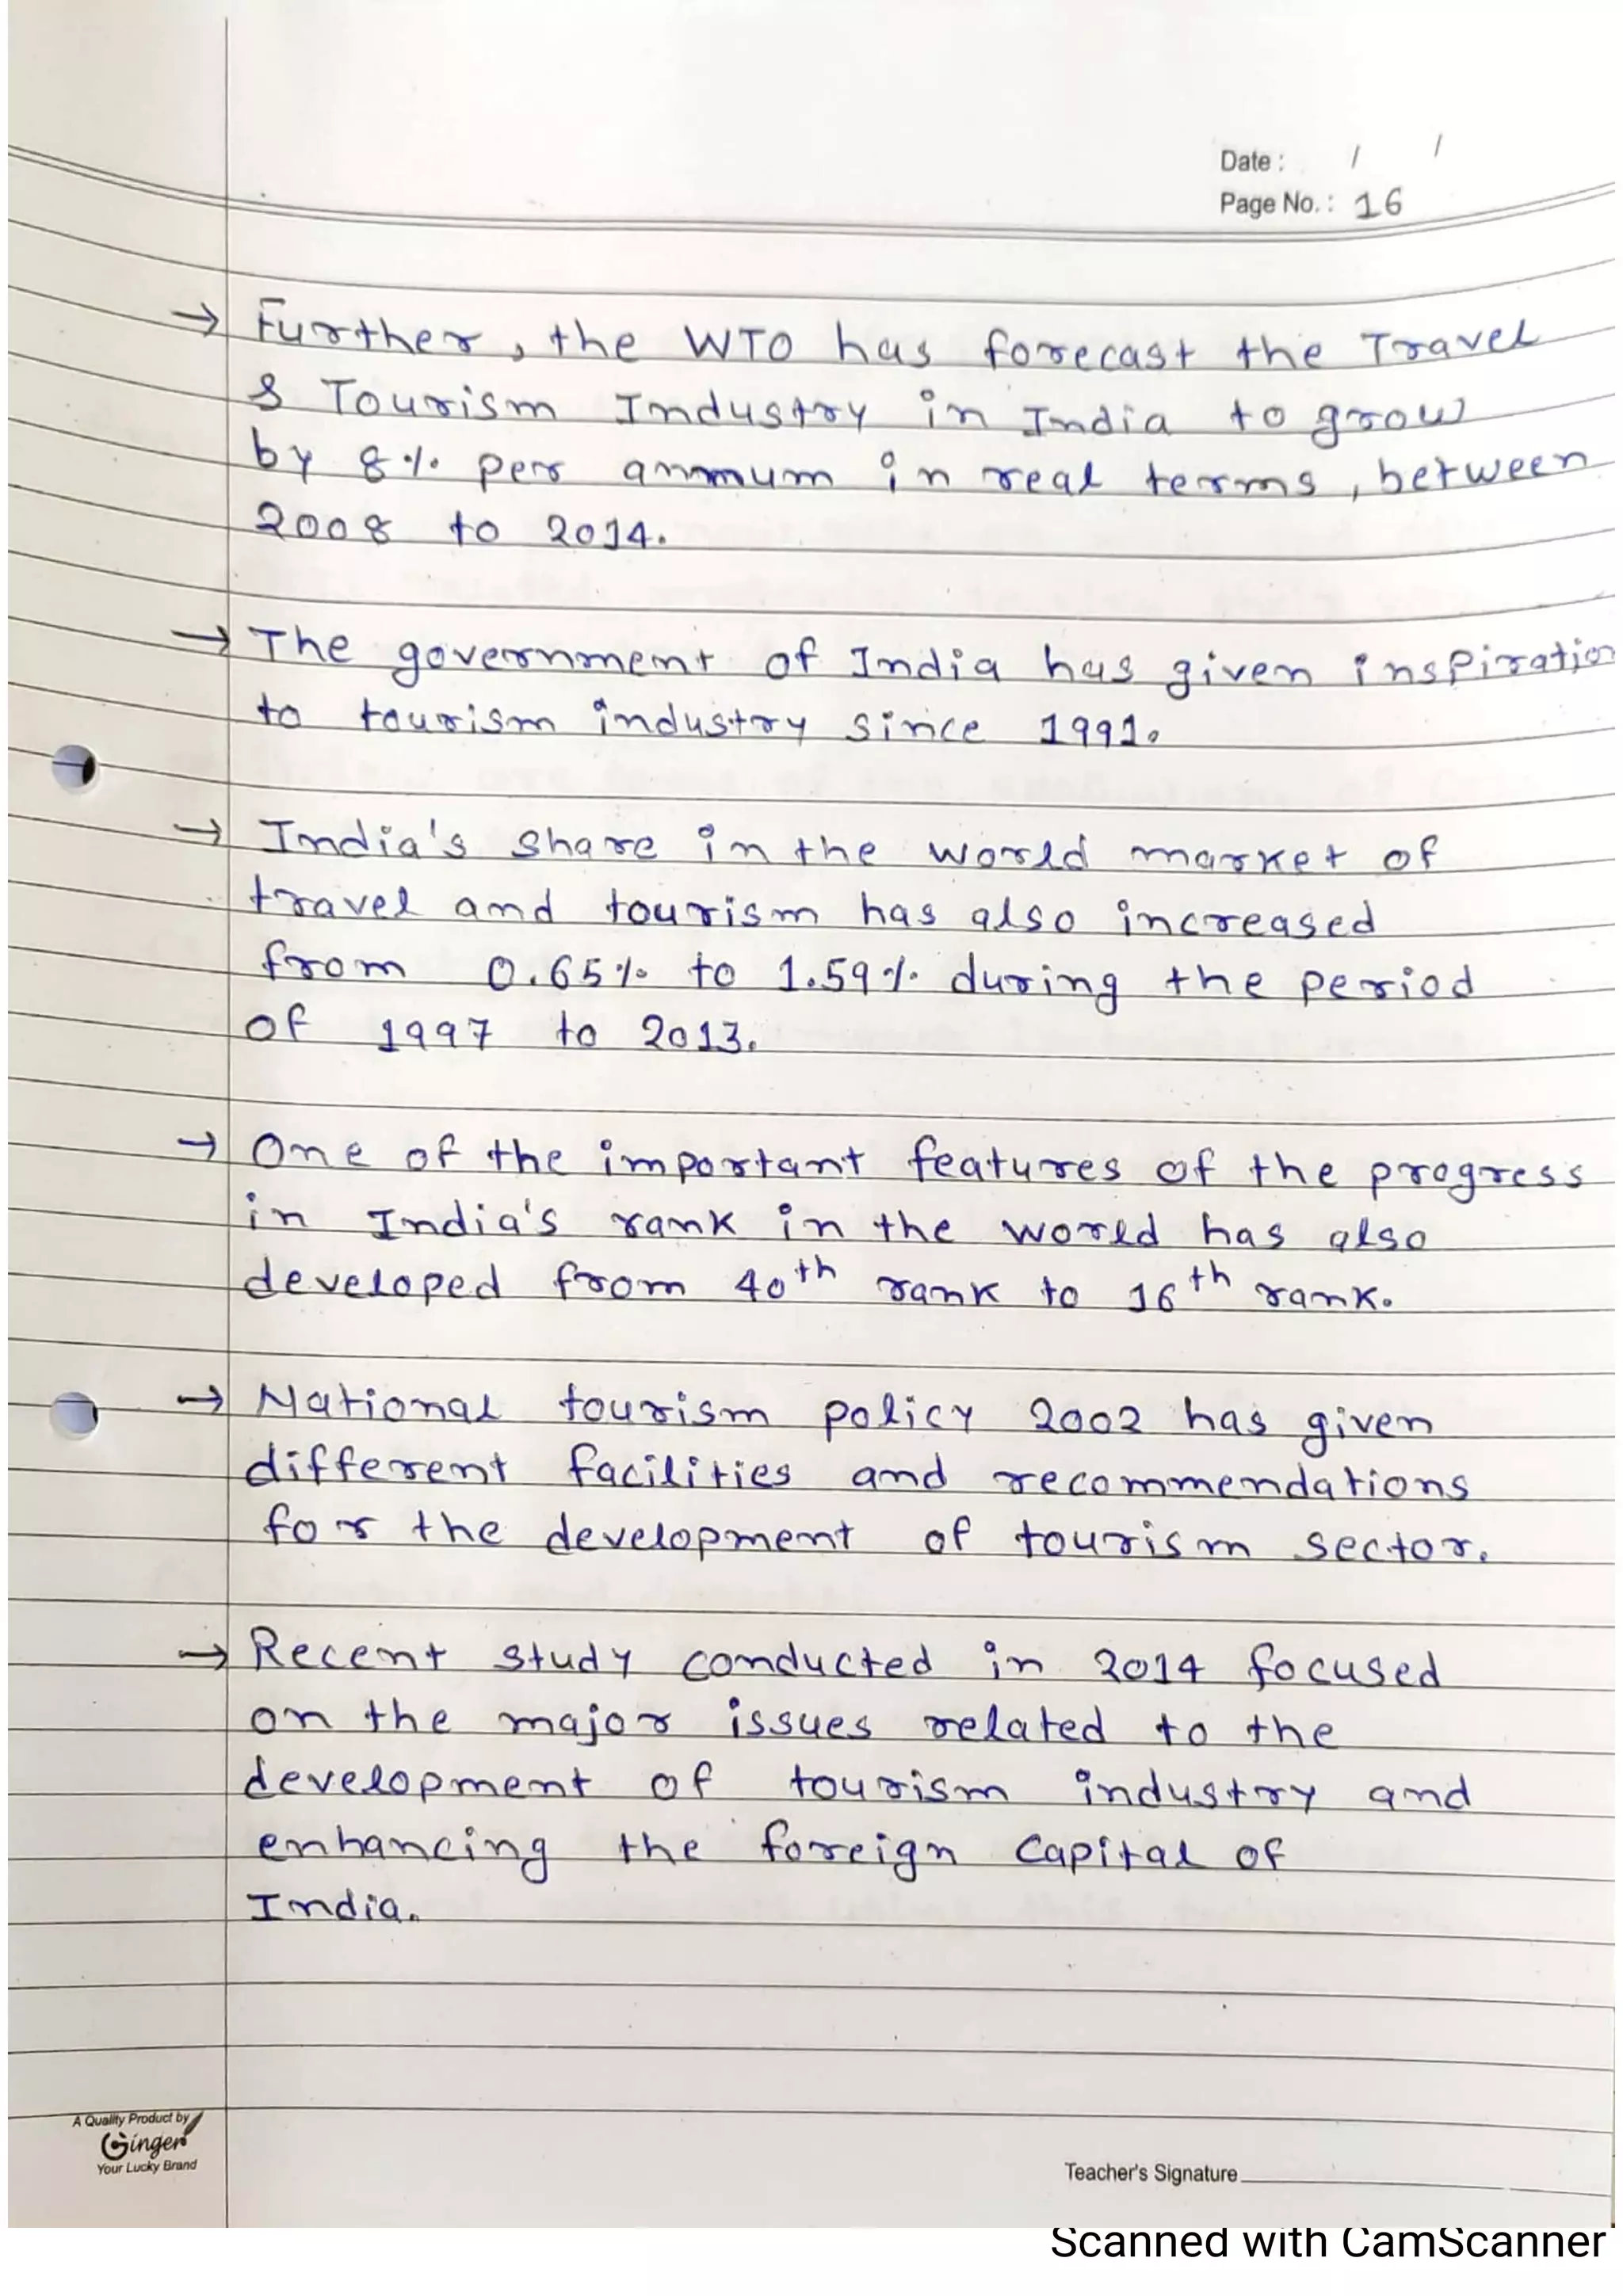 Date : / /
Page No. : 16
→ Further, the WTO has forecast the Travel
& Tourism Industry in India to grow
by 8% per annum in real terms, between
2008 to 2014.
→ The government of India has given inspiration
to tourism industry since 1991.
→ India's share in the world market of
travel and tourism has also increased
from 0.65% to 1.59% during the period
of 1997 to 2013.
→ One of the important features of the progress
in India's rank in the world has also
developed from 40th rank to 16th rank.
→ National tourism policy 2002 has given
different facilities and recommendations
for the development of tourism sector.
→ Recent study conducted in 2014 focused
on the major issues related to the
development of tourism industry and
enhancing the foreign capital of
India.
A Quality Product by
Ginger
Your Lucky Brand
Teacher's Signature
Scanned with CamScanner